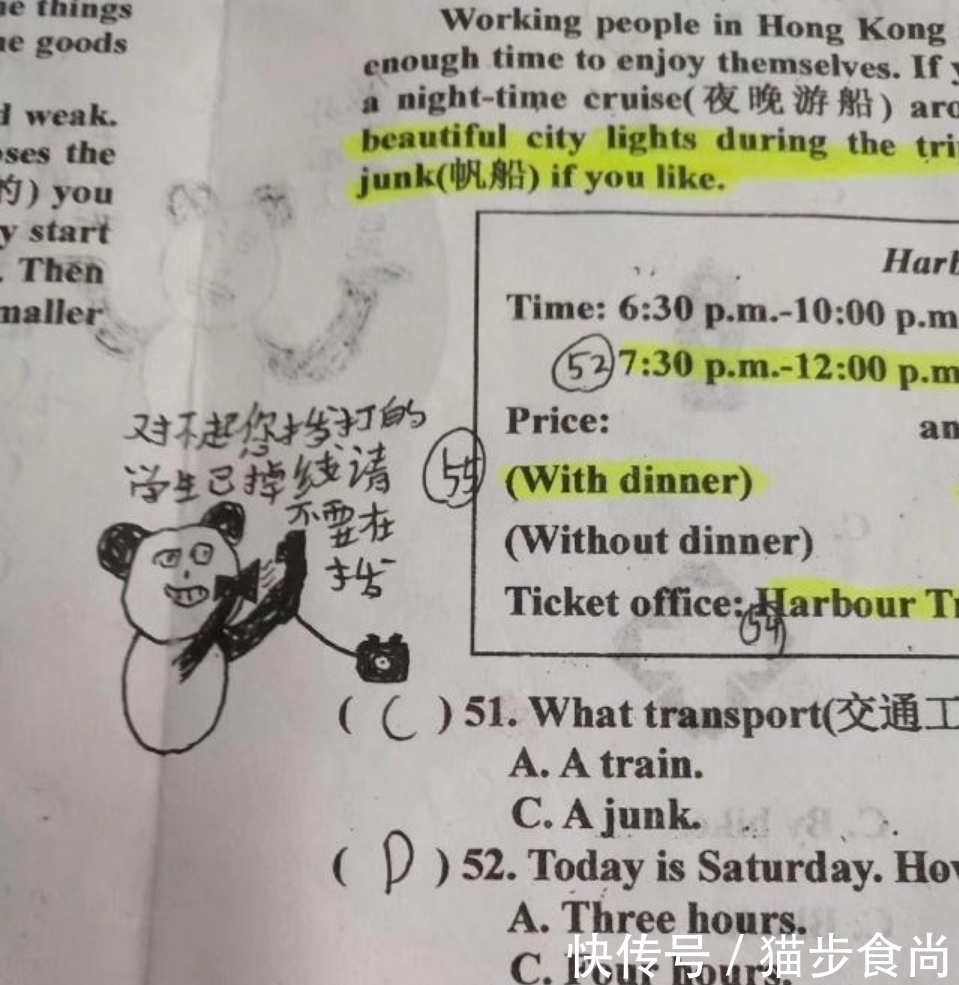 ne things
he goods
d weak.
oses the
的) you
y start
. Then
maller
Working people in Hong Kong
enough time to enjoy themselves. If y
a night-time cruise(夜晚游船) aro
beautiful city lights during the tri
junk(帆船) if you like.
Harb
Time: 6:30 p.m.-10:00 p.m
52 7:30 p.m.-12:00 p.m
Price: an
55 (With dinner)
(Without dinner)
Ticket office: Harbour Tr
54
对不起您拨打的
学生已掉线请
不要在
拨
( C ) 51. What transport(交通工
A. A train.
C. A junk.
( D ) 52. Today is Saturday. How
A. Three hours.
C. Four hours.
快传号 / 猫步食尚